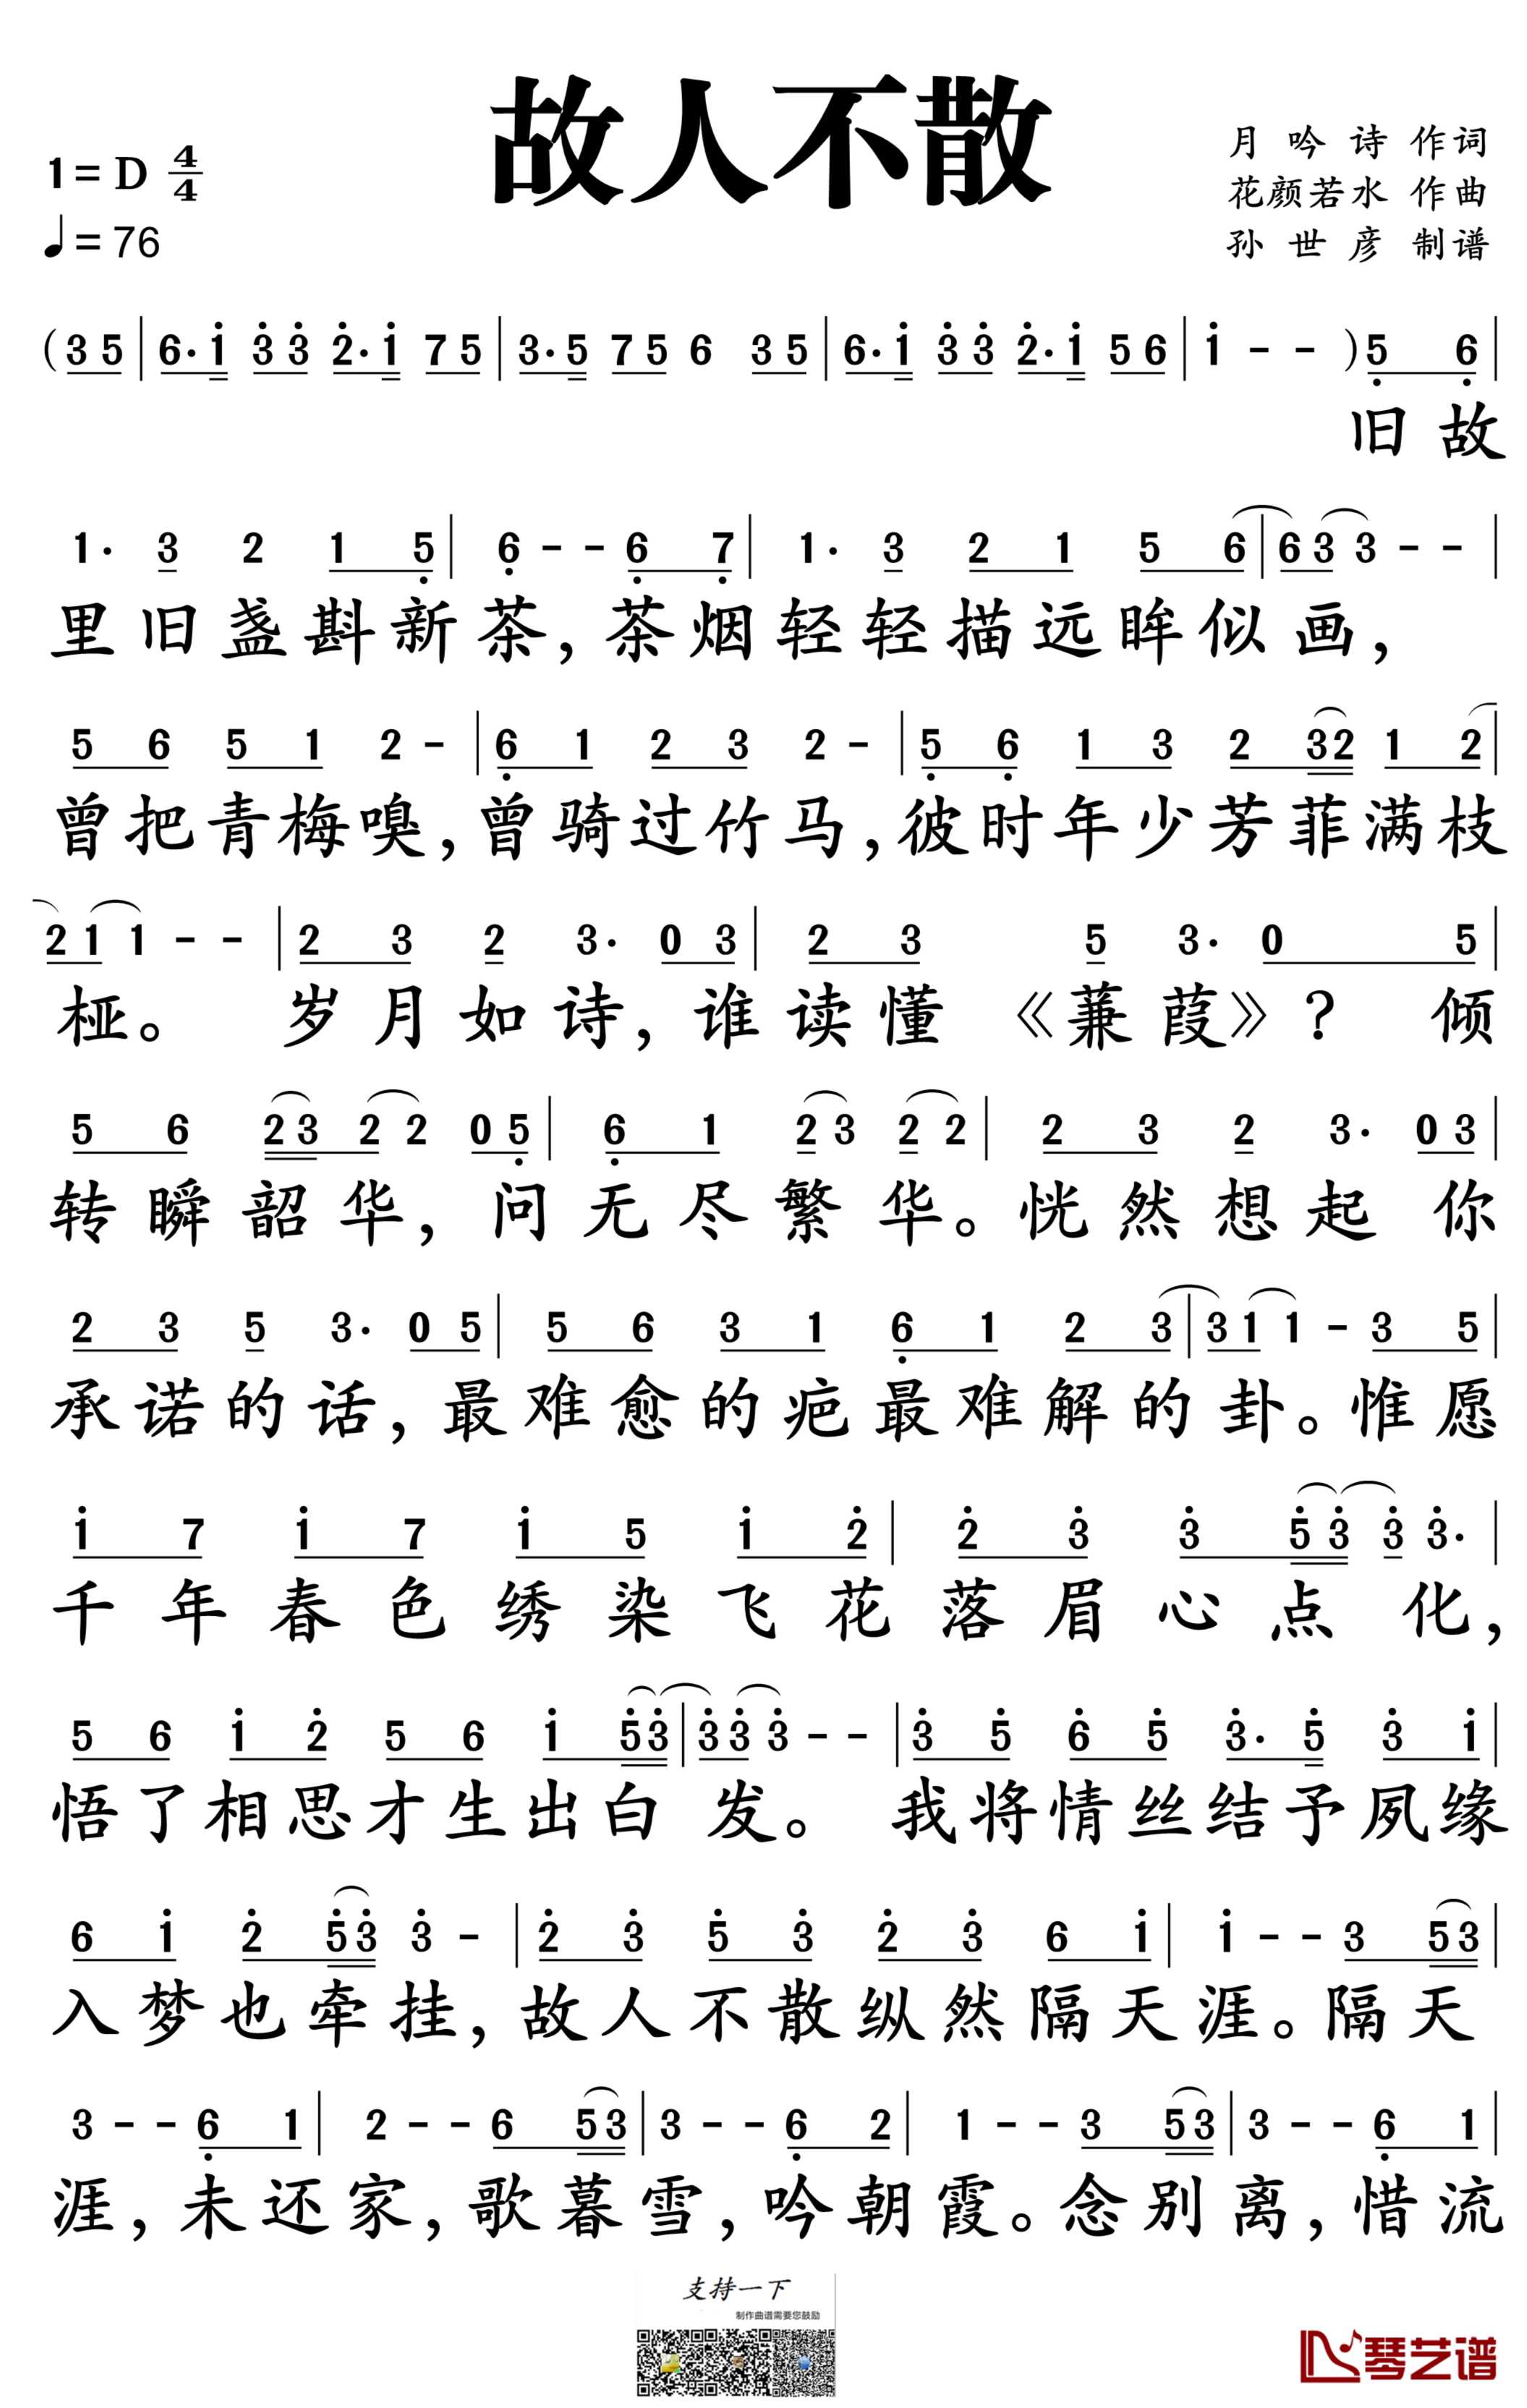 故人不散
1=D 4/4
♩=76
月吟诗 作词
花颜若水 作曲
孙世彦 制谱
(35|6·i̇ 3̇3̇ 2̇·i̇ 75|3·5 756 35|6·i̇ 3̇3̇ 2̇·i̇ 56|i̇ - - )5̣ 6̣|
旧故
1· 3 2 1 5̣|6̣ - - 6̣ 7̣|1· 3 2 1 5 6|63 3 - -|
里旧盏斟新茶,茶烟轻轻描远眸似画,
5 6 5 1 2 -|6̣ 1 2 3 2 -|5̣ 6̣ 1 3 2 32 1 2|
曾把青梅嗅,曾骑过竹马,彼时年少芳菲满枝
21 1 - -|2 3 2 3· 0 3|2 3 5 3· 0 5|
桠。 岁月如诗,谁读懂《蒹葭》? 倾
5 6 23 2 2 05̣|6̣ 1 23 2 2|2 3 2 3· 03|
转瞬韶华,问无尽繁华。恍然想起 你
2 3 5 3· 0 5|5 6 3 1 6̣ 1 2 3|31 1 - 3 5|
承诺的话,最难愈的疤最难解的卦。惟愿
i̇ 7 i̇ 7 i̇ 5 i̇ 2̇|2̇ 3̇ 3̇ 5̇3̇ 3̇ 3̇·|
千年春色绣染飞花落眉心点化,
5 6 i̇ 2̇ 5 6 i̇ 5̇3̇|3̇3̇ 3̇ - -|3̇ 5̇ 6̇ 5̇ 3̇· 5̇ 3̇ i̇|
悟了相思才生出白发。 我将情丝结予夙缘
6 i̇ 2̇ 5̇3̇ 3̇ -|2̇ 3̇ 5̇ 3̇ 2̇ 3̇ 6 i̇|i̇ - - 3 53|
入梦也牵挂,故人不散纵然隔天涯。隔天
3 - - 6̣ 1|2 - - 6 53|3 - - 6̣ 2|1 - - 3 53|3 - - 6̣ 1|
涯,未还家,歌暮雪,吟朝霞。念别离,惜流
支持一下
制作曲谱需要您鼓励
琴艺谱